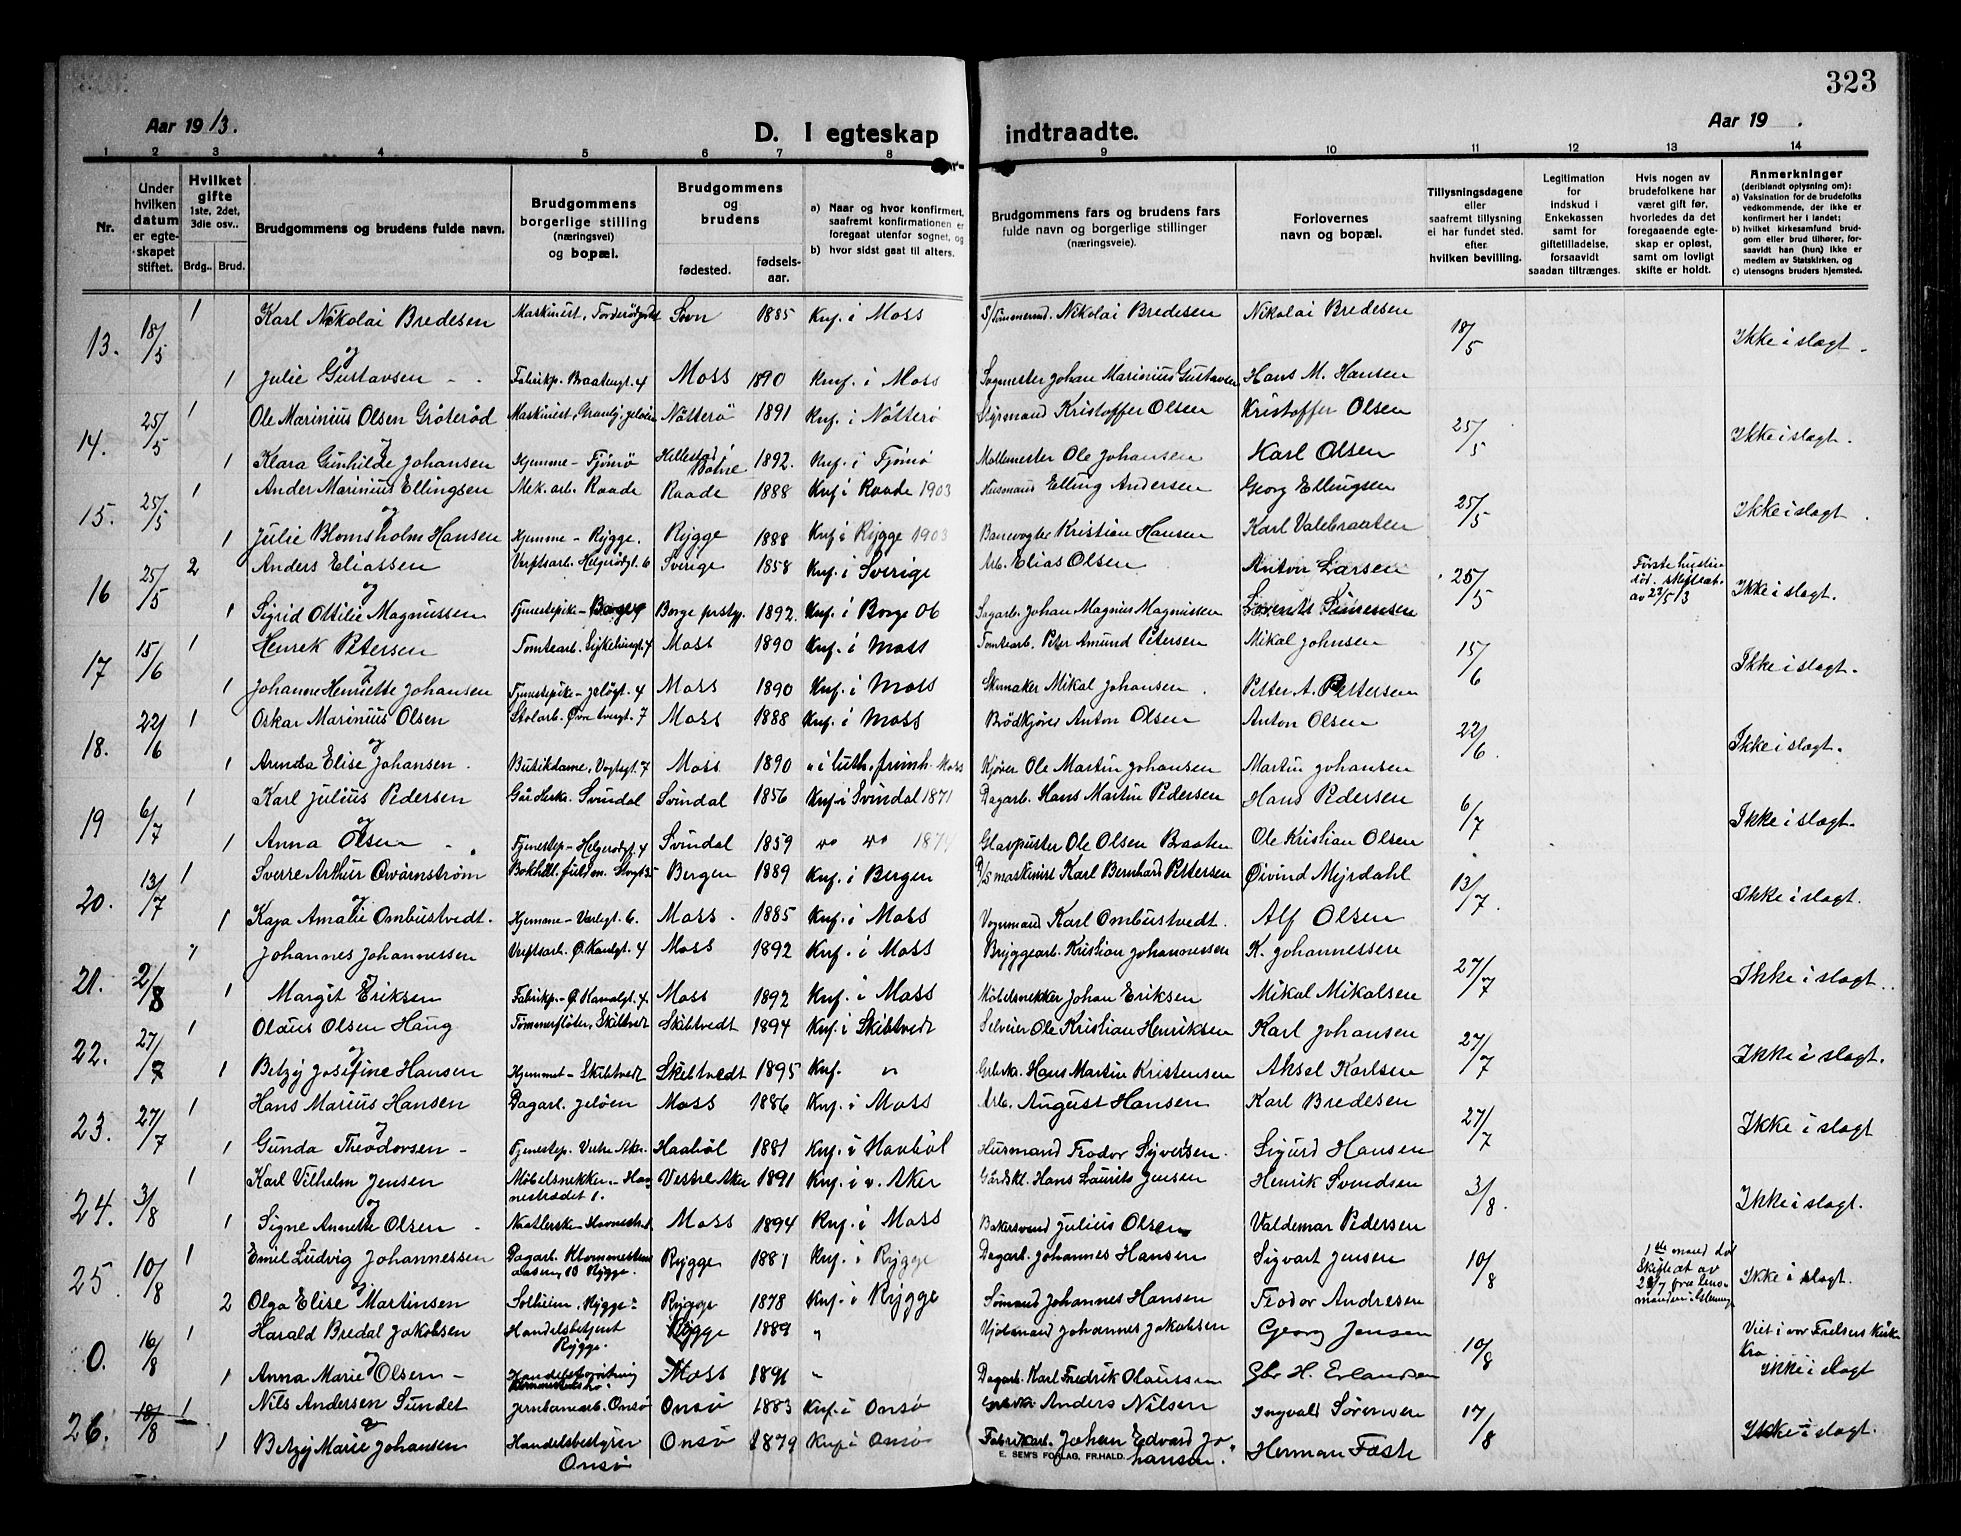 323
Aar 1913.
D. I egteskap indtraadte.
Aar 19 .
1 2 3 4 5 6 7 8 9 10 11 12 13 14
Nr.
Under hvilken datum er egteskapet stiftet.
Hvilket gifte 1ste, 2det, 3die osv..
Brdg.. Brud.
Brudgommens og brudens fulde navn.
Brudgommens borgerlige stilling (næringsvei) og bopæl.
Brudgommens og brudens
fødested.
fødsels-aar.
a) Naar og hvor konfirmert, saafremt konfirmationen er foregaat utenfor sognet, og
b) hvor sidst gaat til alters.
Brudgommens fars og brudens fars fulde navn og borgerlige stillinger (næringsveie).
Forlovernes navn og bopæl.
Tillysningsdagene eller saafremt tillysning ei har fundet sted. efter hvilken bevilling.
Legitimation for indskud i Enkekassen samt for giftetilladelse, forsaavidt saadan tiltrænges.
Hvis nogen av brudefolkene har været gift før, hvorledes da det foregaaende egteskap er opløst, samt om lovligt skifte er holdt.
Anmerkninger (deriblandt oplysning om):
a) Vaksination for de brudefolks vedkommende, der ikke er konfirmert her i landet;
b) hvilket kirkesamfund brudgom eller brud tilhører, forsaavidt han (hun) ikke er medlem av Statskirken, og
c) utensogns bruders hjemsted.
13. 18/5 1 Karl Nikolai Bredesen Maskinist, Son 1885 Knf. i Moss Nikolai Bredesen Nikolai Bredesen 18/5 Ikke i slagt.
og
1 Julie Gustavsen Fabrikp. Braatengt. 4 Moss 1890 Knf. i Moss Sagmester Johan Marinius Gustavsen Hans M. Hansen
14. 25/5 1 Ole Marinius Olsen Gröteröd Maskinist, Nötterö 1891 Knf. i Nötterö Styrmand Kristoffer Olsen Kristoffer Olsen 25/5 Ikke i slagt.
og
1 Klara Gunhilde Johansen Hjemme - Tjömö Hillestad i Botne 1892. Knf. i Tjömö Möllemester Ole Johansen Karl Olsen
15. 25/5 1 Ander Marinius Ellingsen Mek. arb. Raade Raade 1888 Knf i Raade 1903 Husmand Elling Andersen Georg Ellingsen 25/5 Ikke i slagt.
og
1 Julie Blomsholm Hansen Hjemme - Rygge. Rygge 1888 Knf i Rygge 1903 Banevogter Kristian Hansen Karl Valebraaten
16 25/5 2 Anders Eliassen Verftsarb. Helgerödgt. 6 Sverige 1858 Knf. i Sverige Arb. Elias Olsen Anton Larsen 25/5 Ikke i slagt.
og
1 Sigrid Ottilie Magnussen Tjenestepike - Borge Borge prstgj. 1892. Knf. i Borge 06 Sagarb. Johan Magnus Magnussen Lorents Simensen
Förste hustru död. skifteat. av 23/5 13
17 15/6 1 Henrek Petersen Tomtearb. Sykehusgt. 4 Moss 1890 Knf. i Moss Tomtearb. Peter Amund Petersen Mikal Johnsen 15/6 Ikke i slagt.
og
1 Johanne Henriette Johansen Tjenestepike - Jelögt. 4 Moss 1890 Knf. i Moss Skomaker Mikal Johansen Petter A. Pettersen
18. 22/6 1 Oskar Marinius Olsen Stolarb. Övre tvergt. 7 Moss 1888 Knf. i Moss Brödkjörer Anton Olsen Anton Olsen 22/6 Ikke i slagt.
og
1 Arnda Elise Johansen. Butikdame, Vogtsgt. 7 Moss 1890 " i luth. frimh. Moss Kjörer Ole Martin Johansen Martin Johansen
19 6/7 1 Karl Julius Pedersen Svindal Svindal 1856 Knf. i Svindal 1871 Dagarb. Hans Martin Pedersen Hans Pedersen 6/7 Ikke i slagt.
og
1 Anna Olsen Tjenestep - Helgerödgt. 4 Svindal 1859 " " 1874 Glaspuster Ole Olsen Braaten Ole Kristian Olsen
20. 13/7 1 Sverre Arthur Qvarnström Bokhdl. fuldm. Bergen 1889 Knf. i Bergen D/s maskinist Karl Bernhard Pettersen Öivind Myrdahl 13/7. Ikke i slagt.
og
1 Kaja Amalie Ombustvedt. Hjemme - Varlegt. 6. Moss. 1885 Knf. i Moss Vognmand Karl Ombustvedt. Alf Olsen
21. 2/8 " Johannes Johannessen Verftsarb. Ö. Kanalgt. 4 Moss 1892 Knf. i Moss Bryggearb. Kristian Johannessen K. Johannessen 27/7 Ikke i slagt.
og
1 Margit Eriksen Fabrikp. - Ö. Kanalgt. 4 Moss 1892 Knf. i Moss Möbelsnekker Johan Eriksen Mikal Mikalsen
22. 27/7 1 Olaus Olsen Haug Tömmerflöter, Skibtvedt Skibtvedt 1894 Knf. i Skibtvedt Selveier Ole Kristian Henriksen Karl Johansen 27/7 Ikke i slagt.
og
1 Betzy Josefine Hansen Hjemmet - Skibtvedt Skibtvedt 1895 Knf. " Grbrk. Hans Martin Kristensen Aksel Karlsen
23. 27/7 1 Hans Marius Hansen Dagarb. Jelöen Moss 1886 Knf. i Moss Arb. August Hansen Karl Bredesen 27/7 Ikke i slagt
og
1 Gunda Theodorsen - Tjenestep. Vestre Aker. Haaböl 1881 Knf. i Haaböl Husmand Teodor Syversen. Sigurd Hansen
24. 3/8 1 Karl Vilhelm Jensen Möbelsnekker - Havnestrædet 1. Vestre Aker 1891 Knf. i v. Aker Gårdskl. Hans Laurits Jensen Henrik Svendsen 3/8. Ikke i slagt.
og
1 Signe Annette Olsen - Moss 1894 Knf. i Moss Bakersvend Julius Olsen Valdemar Pedersen
25. 10/8 1 Emil Ludvig Johannessen Dagarb. Rygge. Rygge 1881 Knf. i Rygge Dagarb. Johannes Hansen Sigvart Jensen 10/8 Ikke i slagt.
og
2 Olga Elise Martinsen Solheim, Rygge - Rygge 1878 Knf. i Rygge Sömand Johannes Hansen Teodor Andresen
1ste mand död Skifteat av 28/7 fra lensmanden i Glemmg
0. 16/8 1 Harald Bredal Jakobsen Handelsbetjent Rygge. Rygge 1889 " Johannes Jakobsen Georg Jensen 10/8 Viet i vor Frelsers Kirke Kra
og
1 Anna Marie Olsen - Moss 1891 " Dagarb. Karl Fredrik Olaussen H. Erlandsen Ikke i slagt
26. 10/8 1 Nils Andersen Sundet Jernbanearb. Onsö Onsö 1883 Knf. i Onsö Anders Nilsen Ingvald Sörensen 17/8 Ikke i slagt.
og
1 Betzy Marie Johansen Handelsbestyrer Onsö Onsö 1879 Knf i Onsö Fabrikarb. Johan Edvard Johansen. Herman Faste
E. SEM'S FORLAG, FR.HALD.